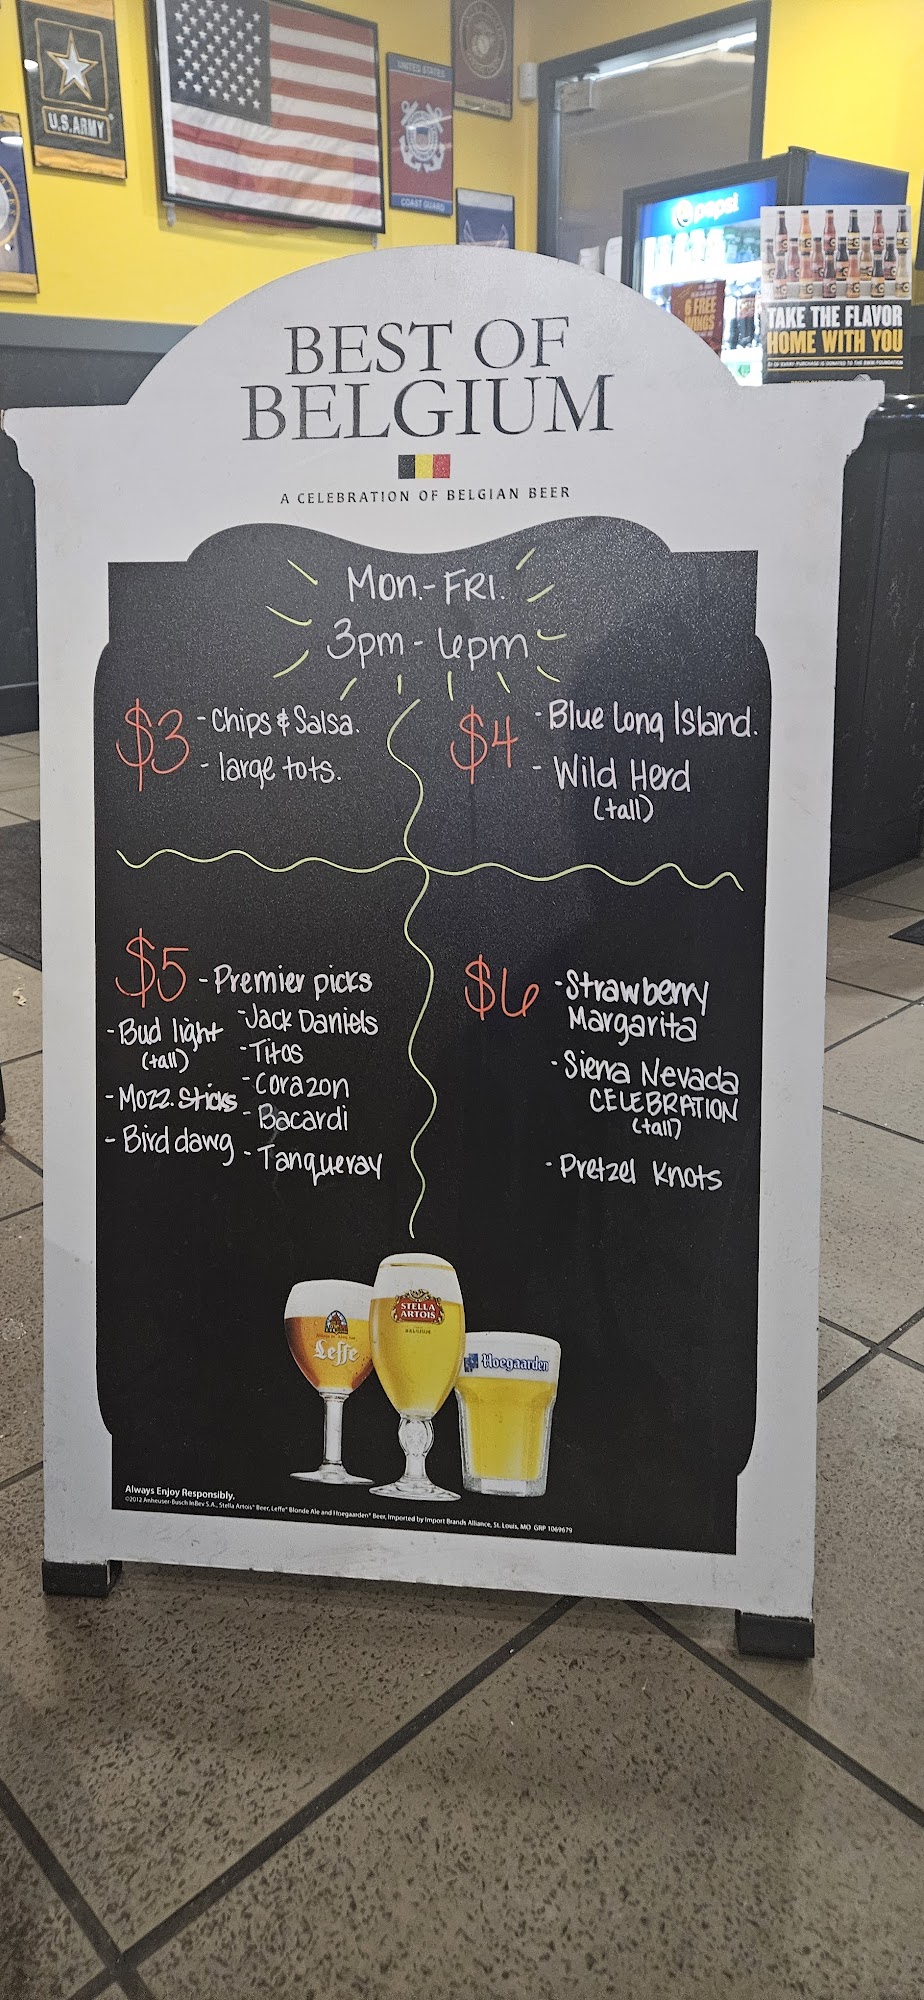 U.S. ARMY
UNITED STATES
COAST GUARD
pepsi
6 FREE
WINGS
TAKE THE FLAVOR
HOME WITH YOU
BEST OF
BELGIUM
A CELEBRATION OF BELGIAN BEER
Mon.-FRI.
3pm - 6pm
$3 - Chips & Salsa.
- large tots.
$4 - Blue Long Island.
- Wild Herd
(tall)
$5 - Premier picks
- Bud light
(tall)
- Mozz. Sticks
- Bird dawg
- Jack Daniels
- Titos
- Corazon
- Bacardi
- Tanqueray
$6 - Strawberry
Margarita
- Sierra Nevada
CELEBRATION
(tall)
- Pretzel Knots
Leffe
STELLA
ARTOIS
BELGIUM
Hoegaarden
Always Enjoy Responsibly.
©2012 Anheuser-Busch InBev S.A., Stella Artois® Beer, Leffe® Blonde Ale and Hoegaarden® Beer, Imported by Import Brands Alliance, St. Louis, MO GRP 1069679